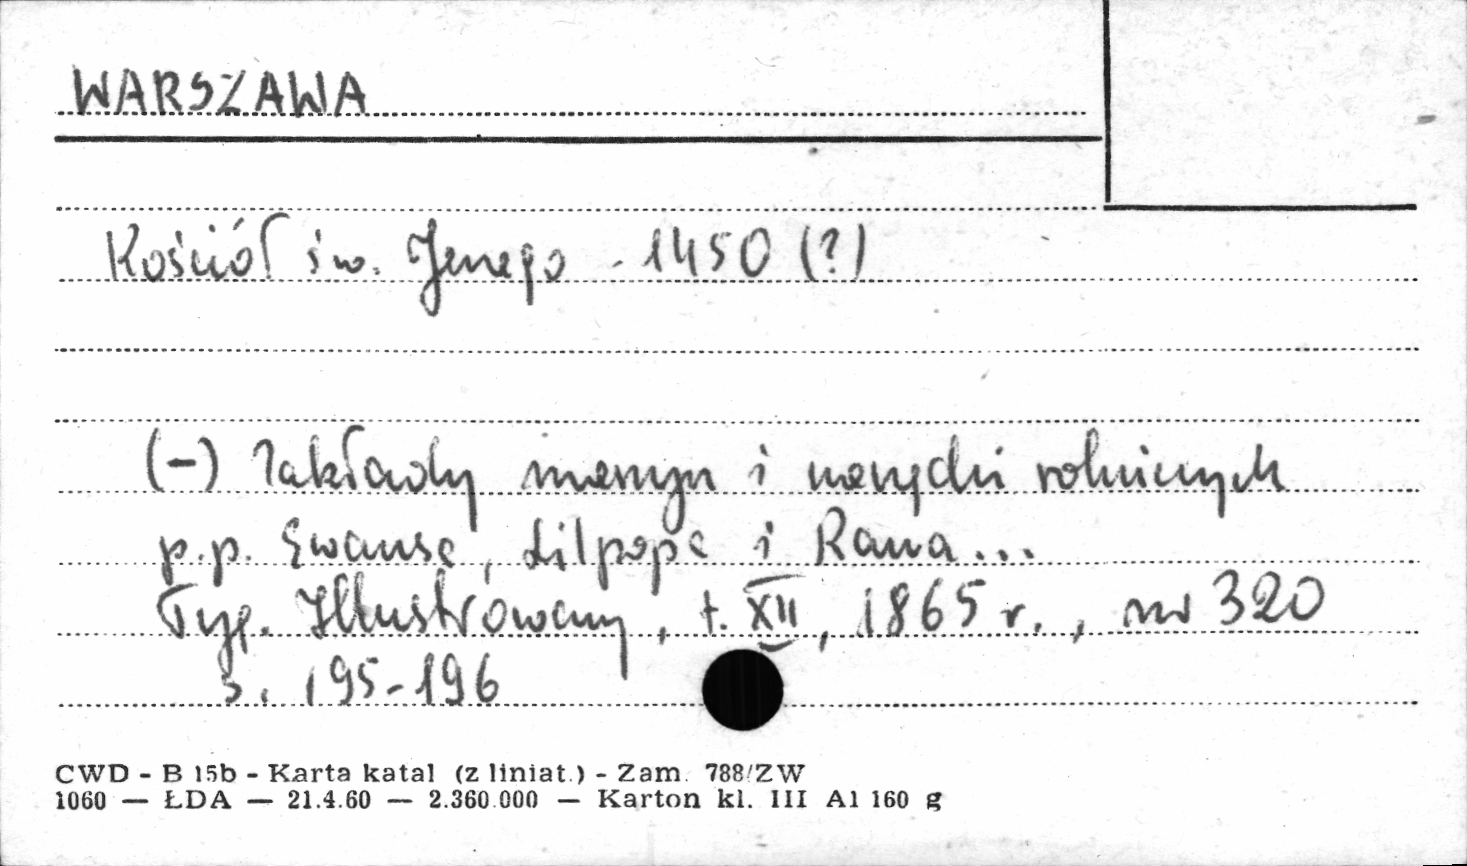 WARSZAWA
Kościół św. Jerzego - 1450 (?)
(-) Zakłady maszyn i narzędzi rolniczych
p.p. Ewansa, Lilpopa i Rawa...
Tyg. Illustrowany, t. XII, 1865 r., nr 320
s. 195-196
CWD - B 15b - Karta katal (z liniat.) - Zam. 788/ZW
1060 — ŁDA — 21.4.60 — 2.360.000 — Karton kl. III A1 160 g